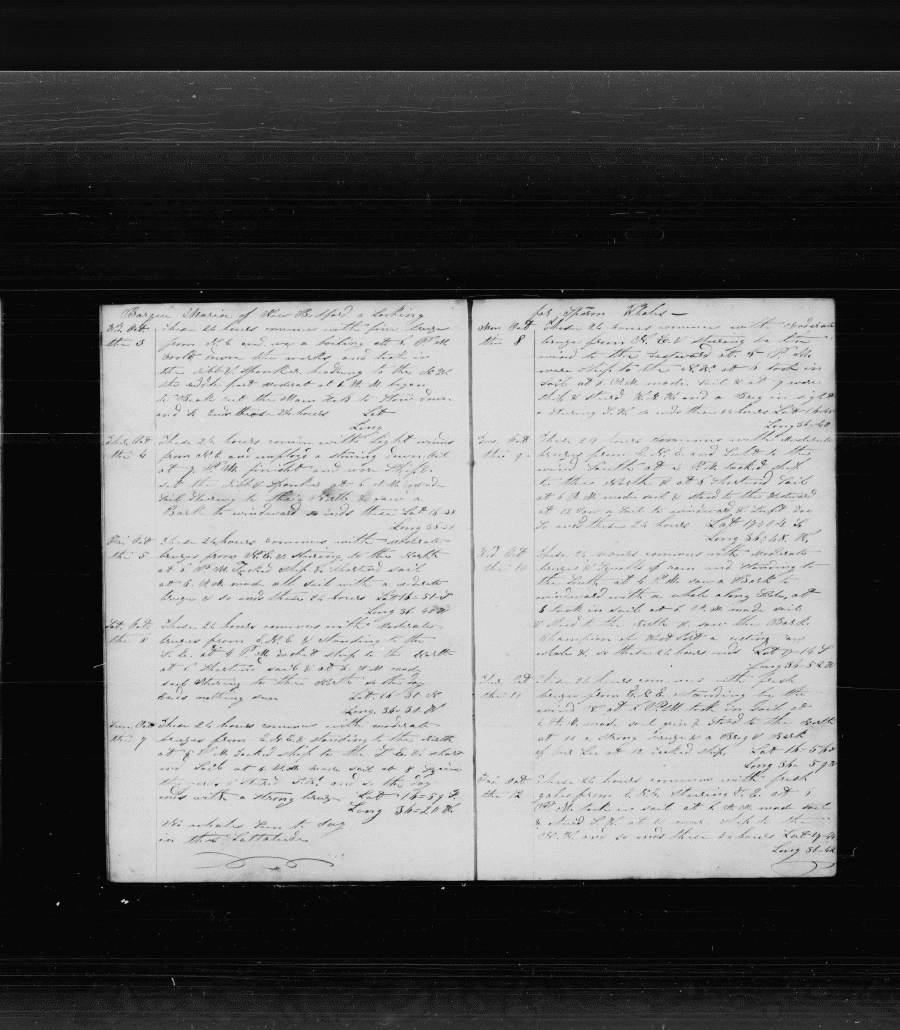 Barque Maria of New Bedford a Looking
Wd. Oct These 24 hours commens with fine breezes
the 3 from N.E and we a boiling at 6 P.M
the jibb & Spanker heading to the
the middle part moderat at 6 A M began
to Break out the Main hold to Stow down
and so ends these 24 hours Lat
Long
Thur. Oct These 24 hours comins with Light winds
the 4 from N E and employed a stowing down oil
at 7 P M finished and wore Ship &
set the Jibb & Spanker at 6 A M made
Sail Stearing to the North & saw a
Bark to windward so ends these Lat 16-38
Long
Fri Oct These 24 hours commens with moderate
the 5 brezes from N.E. & Stearing to the North
at 6 P M Tacked Ship & Shortend sail
at 6 A M made all sail with a moderate
breze & so ends these 24 hours Lat 16-51 S
Long 36-48 W
Sat. Oct. These 24 hours commens with Moderate
the 6 brezes from E.N.E & standing to the
S.E. at 4 P.M. Tacked ship to the North
at 6 Shortend sail & at 6 A M made
sail Stearing to the North so the day
Ends nothing seen Lat 16-31
Long. 36-31 W
Sun. Oct These 24 hours commens with moderate
the 7 brezes from E.N.E & standing to the North
at 8 P M Tacked ship to the S.E. & short
end Sail at 6 A.M. made sail at 8
and so the day
ends with a strong breze Lat 16-59 S.
Long 36-20 W
No whales seen to day
in this Lattatude
for Sparm Whales
Mon Oct These 24 hours commens with Moderate
the 8 breze from N. E. & Stearing by the
wind to the eastward at 5 P M
wore Ship to the N.W. at 6 took in
sail at 6 A M made Sail & at 7 wore
ship & steard and a Brig in sight
a Stearing S.W. so ends these 24 hours Lat
Long 36-40
Tus. Oct These 24 hours commens with Moderate
the 9 brezes from E.N.E and Lufed to the
wind South at 4 P M tacked ship
to the North & at 6 Shortend Sail
at 6 A M made sail & stood to the Westward
at 12 saw a Sail to windward & Luft
So ends these 24 hours Lat 17-04 S
Long 36-48 W
Wd Oct These 24 hours commens with Moderate
the 10 brezes & Squalls of rain and standing to
the South at 4 P M saw a Bark to
windward with a whale along Side at
6 took in sail at 6 A M made sail
& stood to the North & saw the Bark
Champion of W Port a cuting a
whale & so these 24 hours ends Lat 17-14 S
Long 36-52 W
Thr. Oct These 24 hours commens with fresh
the 11 brezes from E.N.E standing by the
wind S at 6 P.M took in Sail at
6 A M made sail and stood to the North
at 11 a strong breze & a Brig & Bark
of our Lee at 12 Tacked ship, Lat 16-56 S
Long 36-59 W
Fri Oct These 24 hours commens with fresh
the 12 gales from E.N.E. Stearing S.E. at 6
P M took in sail at 6 A M made sail
ship to the
and so ends these 24 hours Lat 17-
Long 36-42